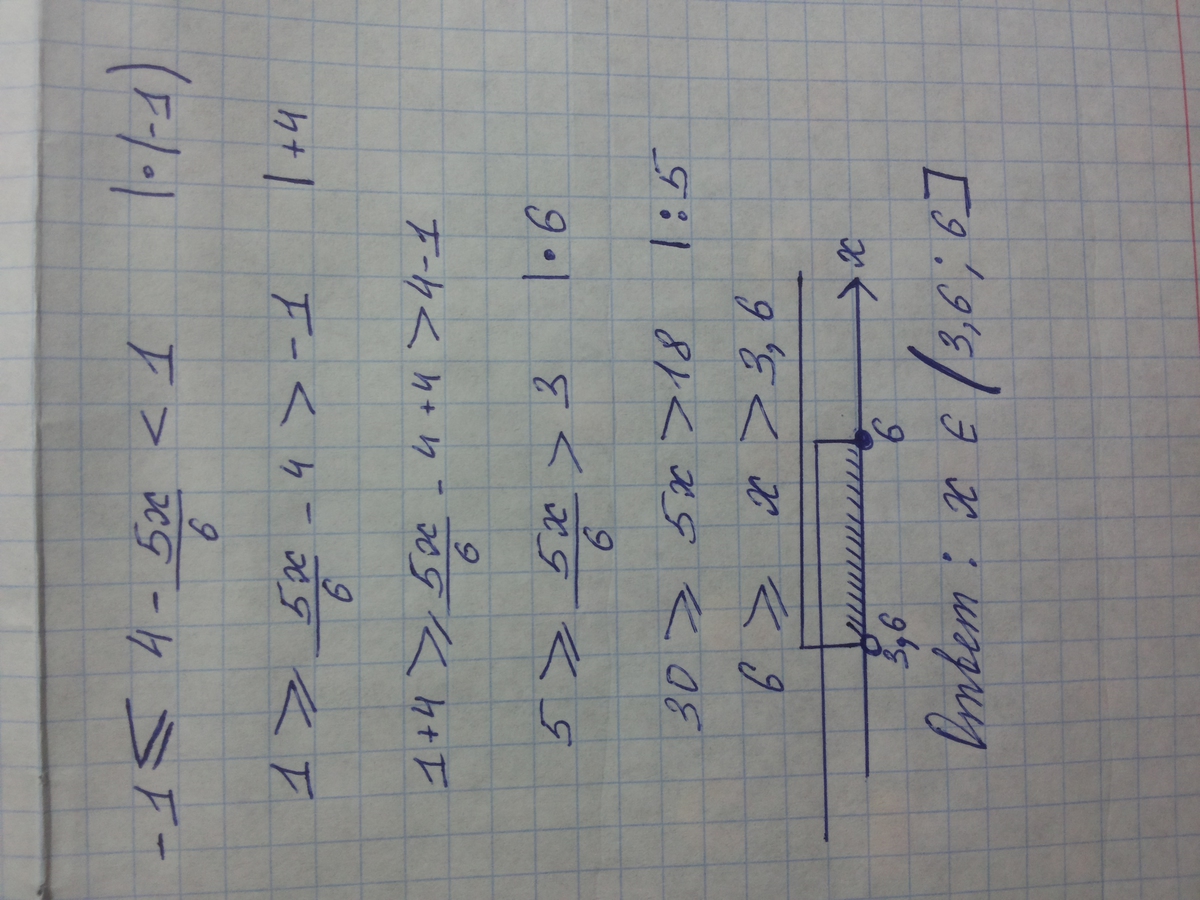 -1 ⩽ 4 - 5x/6 < 1 |·(-1)
1 ⩾ 5x/6 - 4 > -1 |+4
1+4 ⩾ 5x/6 - 4 + 4 > 4-1
5 ⩾ 5x/6 > 3 |·6
30 ⩾ 5x > 18 |:5
6 ⩾ x > 3,6
3,6 6 x
Ответ: x ∈ (3,6; 6]